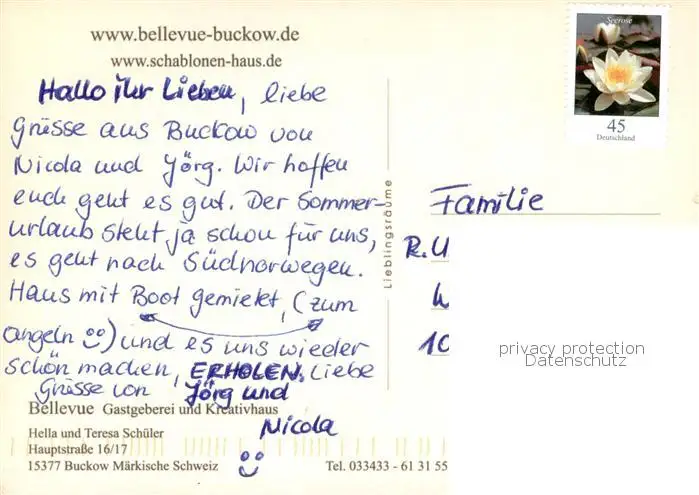 www.bellevue-buckow.de
www.schablonen-haus.de
Hallo ihr Lieben, liebe
Grüsse aus Buckow von
Nicola und Jörg. Wir hoffen
euch geht es gut. Der Sommer-
urlaub steht ja schon für uns,
es geht nach Südnorwegen.
Haus mit Boot gemietet, (zum
angeln) und es uns wieder
schön machen, ERHOLEN. Liebe
Grüsse von Jörg und
Nicola
Bellevue Gastgeberei und Kreativhaus
Hella und Teresa Schüler
Hauptstraße 16/17
15377 Buckow Märkische Schweiz
Tel. 033433 - 61 31 55
Lieblingsräume
Seerose
45
Deutschland
Familie
R.U
10
privacy protection
Datenschutz